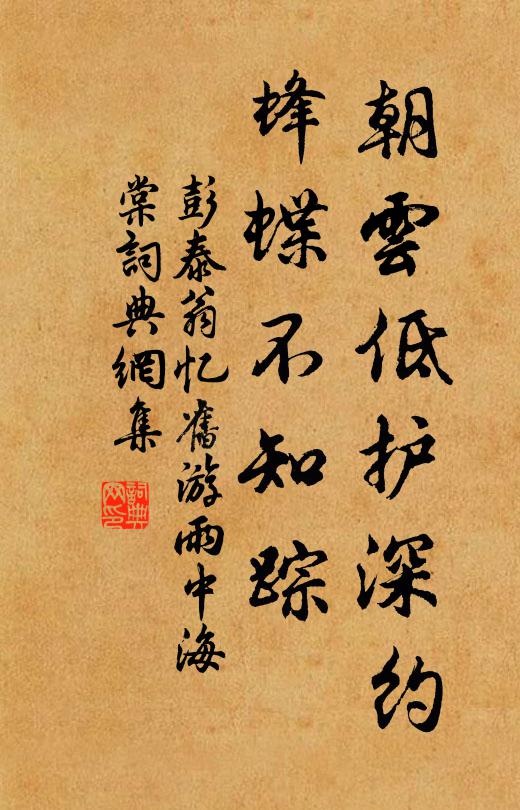 朝雲低护深約
蜂蝶不知踪
彭泰翁忆舊游雨中海
棠詞典網集
詞典
网印